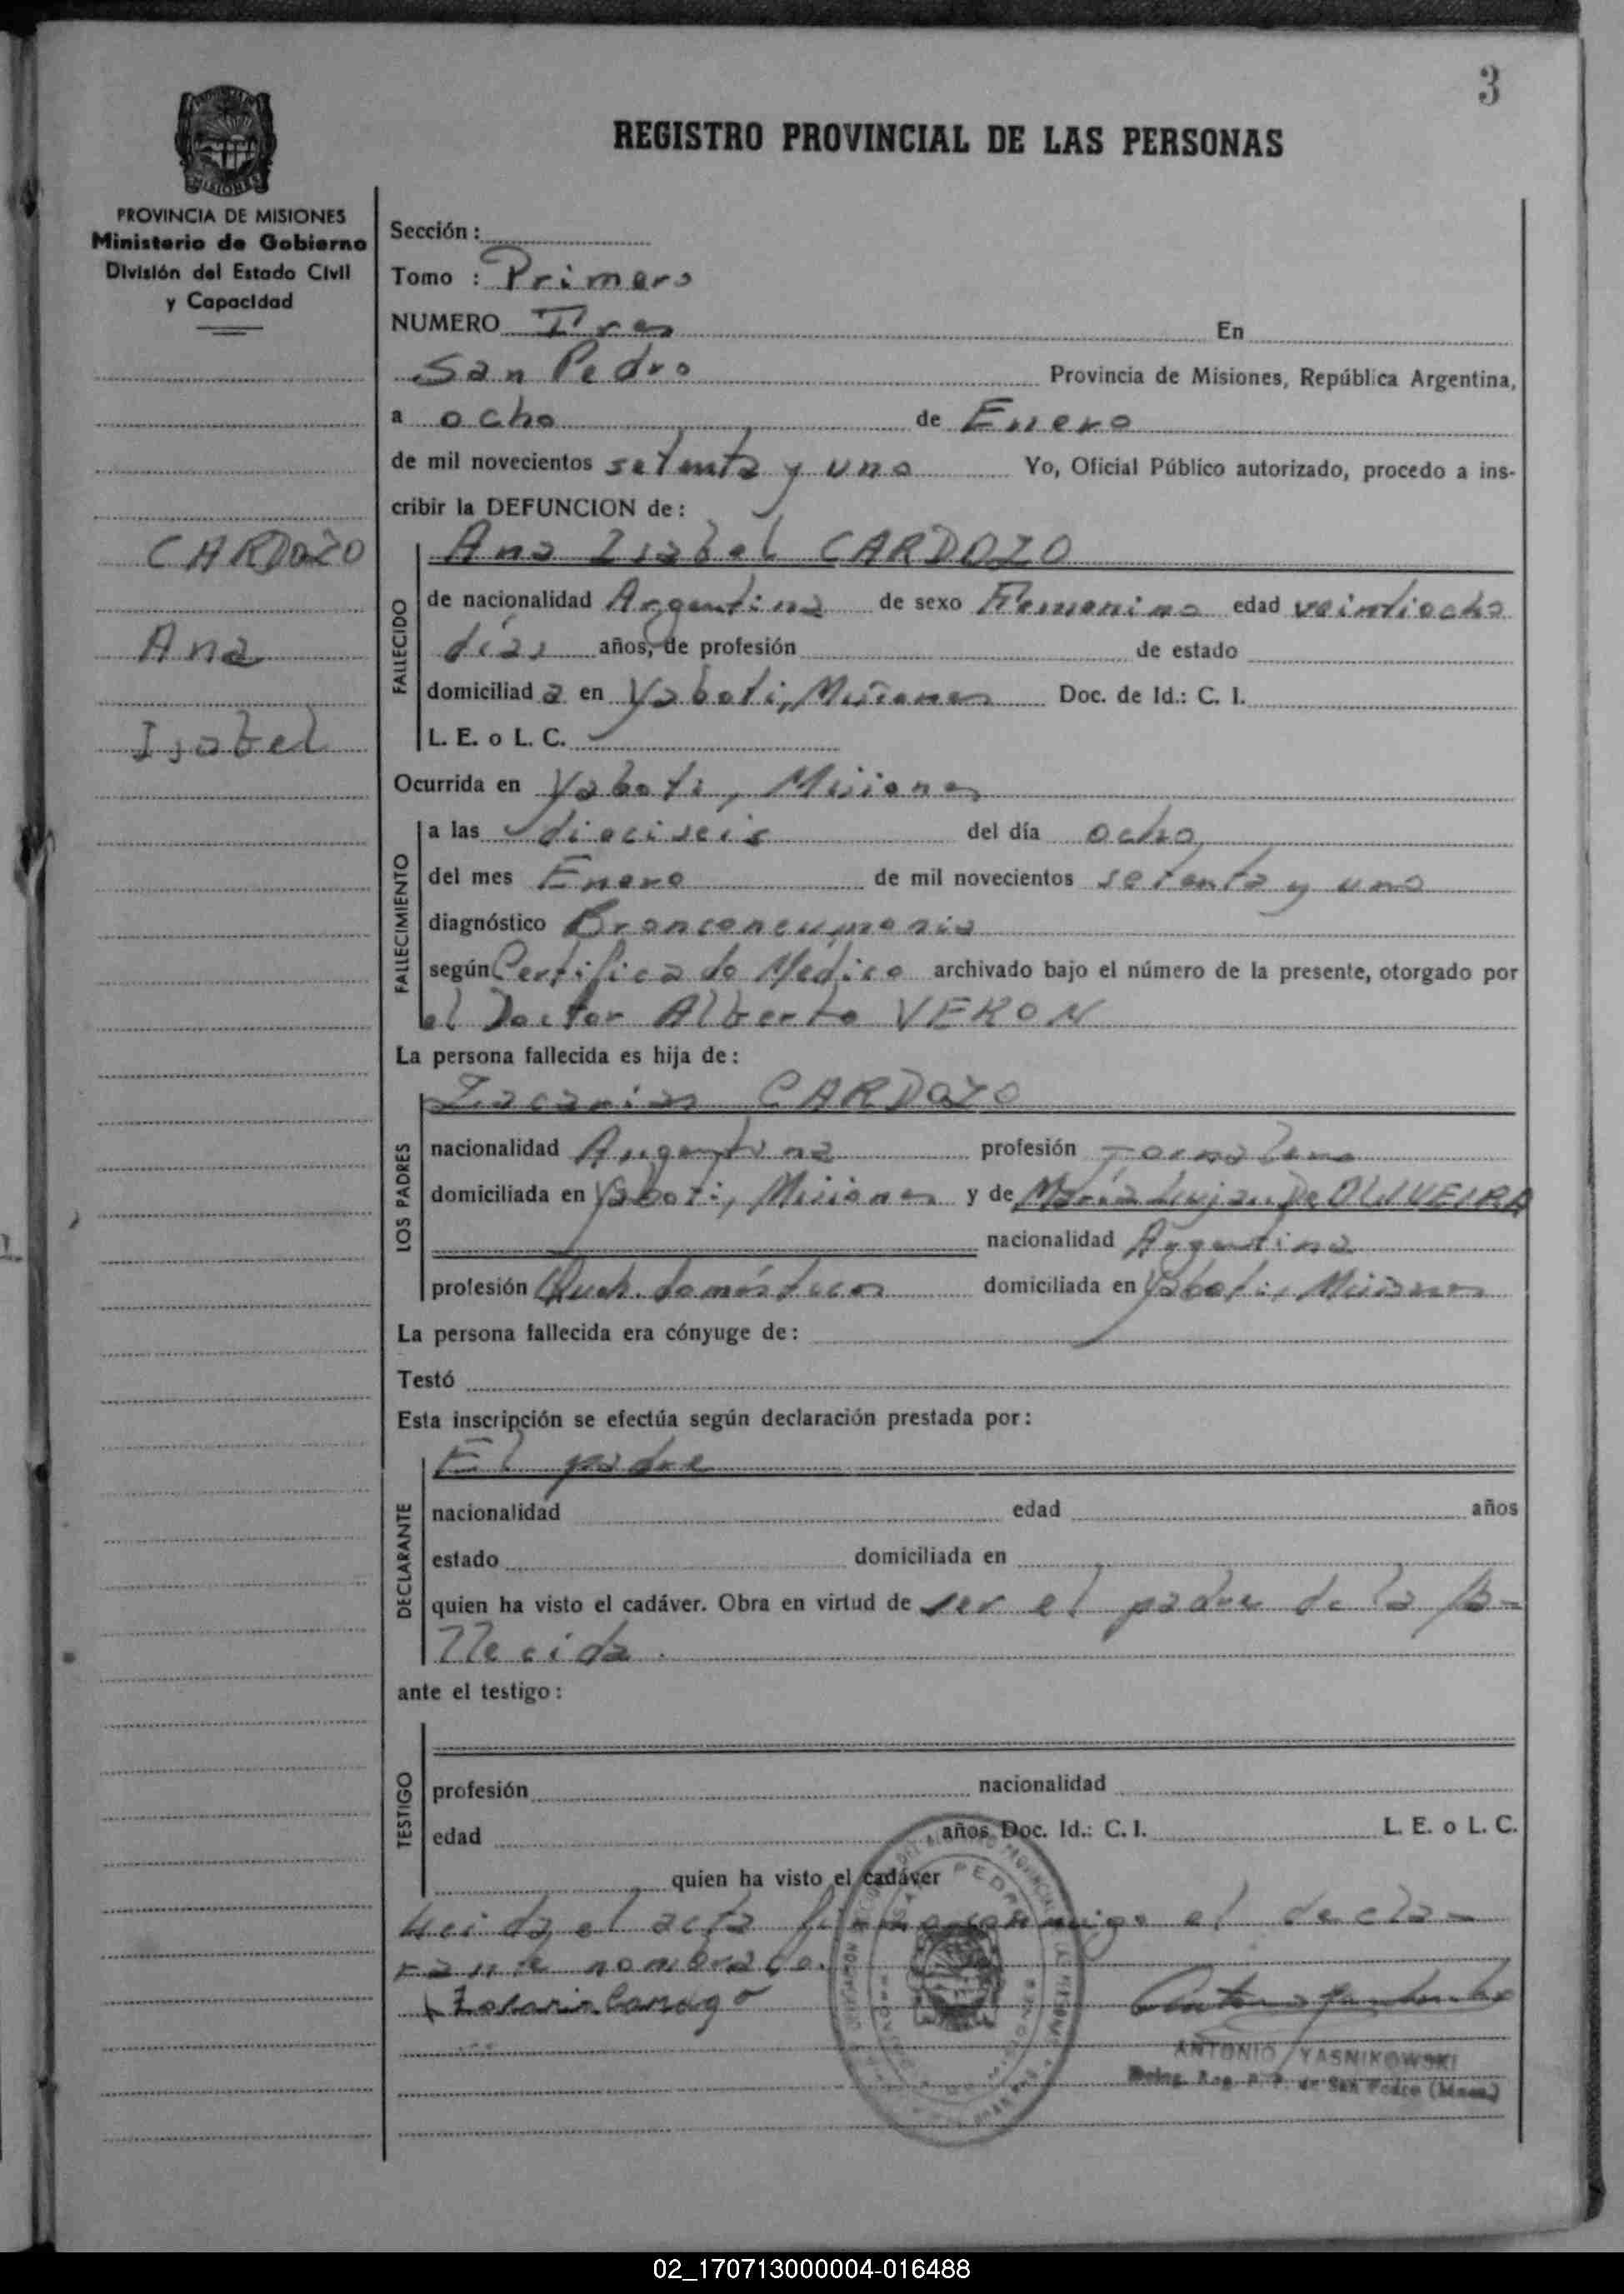 3
REGISTRO PROVINCIAL DE LAS PERSONAS
MISIONES
PROVINCIA DE MISIONES
Ministerio de Gobierno
División del Estado Civil
y Capacidad
CARDOZO
Ana
Isabel
Sección :
Tomo : Primero
NUMERO Tres En
San Pedro Provincia de Misiones, República Argentina,
a ocho de Enero
de mil novecientos setenta y uno Yo, Oficial Público autorizado, procedo a ins-
cribir la DEFUNCION de :
FALLECIDO
Ana Isabel CARDOZO
de nacionalidad Argentina de sexo Femenino edad veintiocho
días años, de profesión de estado
domiciliad a en Yaboti, Misiones Doc. de Id.: C. I.
L. E. o L. C.
Ocurrida en Yaboti, Misiones
FALLECIMIENTO
a las dieciseis del día ocho
del mes Enero de mil novecientos setenta y uno
diagnóstico Bronconeumonia
según Certificado Medico archivado bajo el número de la presente, otorgado por
el Doctor Alberto VERON
La persona fallecida es hija de :
LOS PADRES
Zacarias CARDOZO
nacionalidad Argentina profesión Jornalero
domiciliada en Yaboti, Misiones y de María Lujan De OLIVEIRA
nacionalidad Argentina
profesión Queh. domésticos domiciliada en Yaboti, Misiones
La persona fallecida era cónyuge de :
Testó
Esta inscripción se efectúa según declaración prestada por :
DECLARANTE
El padre
nacionalidad edad años
estado domiciliada en
quien ha visto el cadáver. Obra en virtud de ser el padre de la fa-
llecida.
ante el testigo :
TESTIGO
profesión nacionalidad
edad años Doc. Id.: C. I. L. E. o L. C.
quien ha visto el cadáver
Leida el acta firma conmigo el decla-
rante nombrado.
ANTONIO YASNIKOWSKI
de San Pedro (Mnes.)
02_170713000004-016488